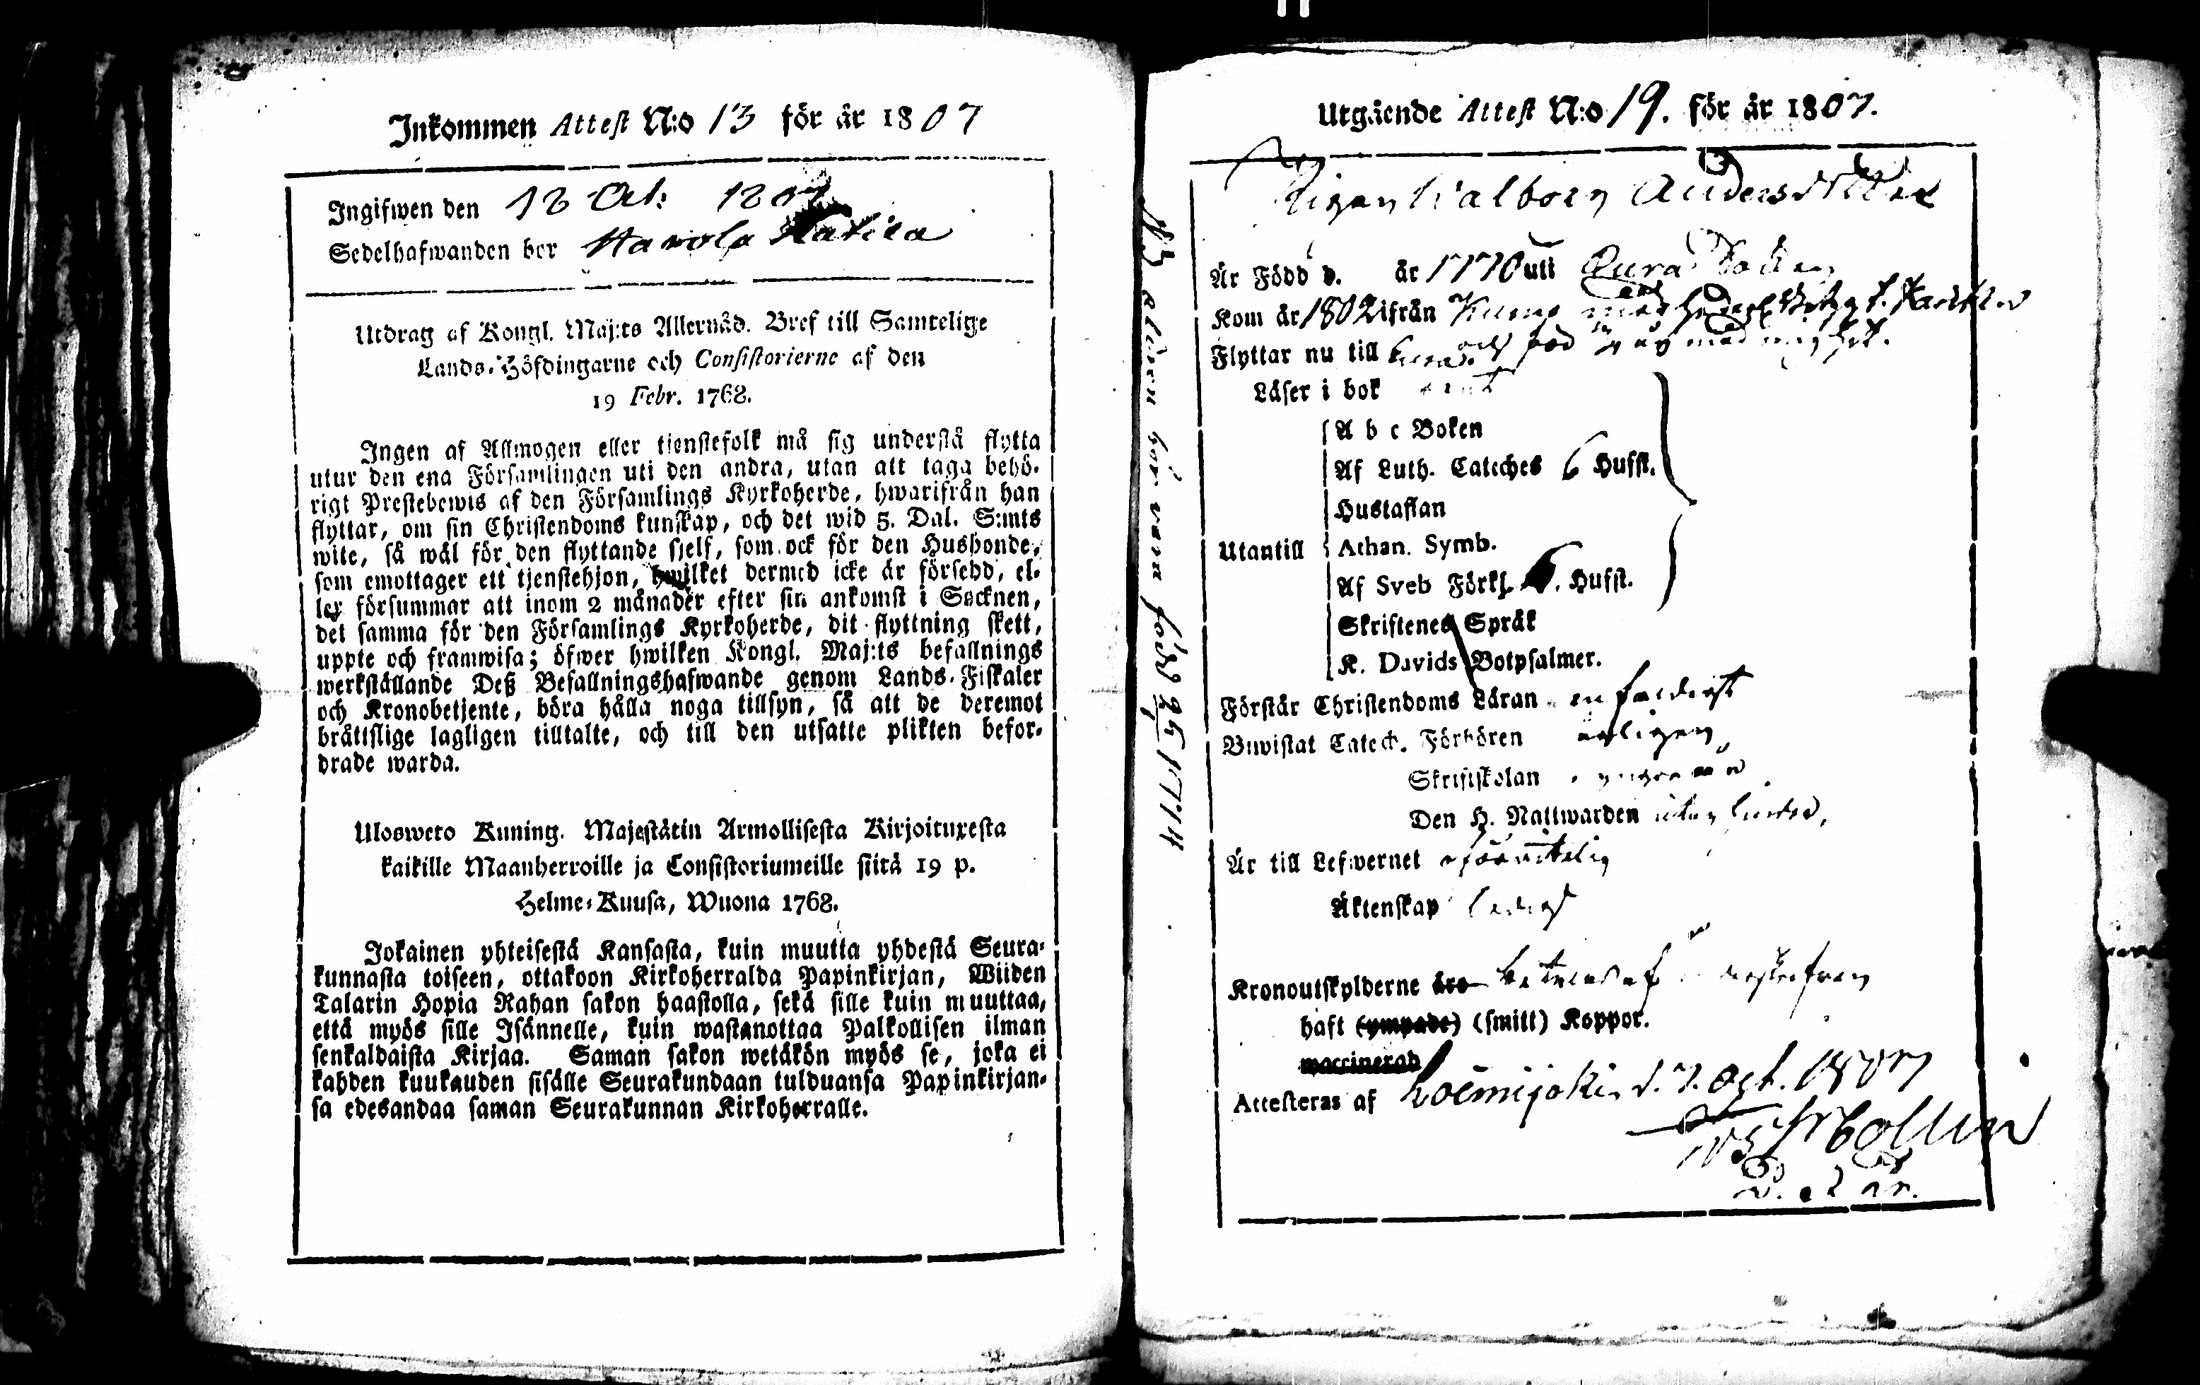 Inkommen Attest N:o 13 för år 1807
Ingifwen den 18 Oct: 1807
Sedelhafwanden bor
Utdrag af Kongl. Maj:ts Allernåd. Bref till Samtelige
Lands-Höfdingarne och Consistorierne af den
19 Febr. 1768.
Ingen af Allmogen eller tjenstefolk må sig understå flytta
utur den ena Församlingen uti den andra, utan att taga behö-
rigt Prestebewis af den Församlings Kyrkoherde, hwarifrån han
flyttar, om sin Christendoms kunskap, och det wid 5. Dal. S:mts
wite, så wäl för den flyttande sjelf, som ock för den Husbonde,
som emottager ett tjenstehjon, hwilket dermed icke är försedd, el-
ler försummar att inom 2 månader efter sin ankomst i Socknen,
det samma för den Församlings Kyrkoherde, dit flyttning skett,
uppte och framwisa; öfwer hwilken Kongl. Maj:ts befallnings
werkställande Deß Befallningshafwande genom Lands-Fiskaler
och Kronobetjente, böra hålla noga tillsyn, så att de deremot
bråttslige lagligen tilltalte, och till den utsatte plikten befor-
drade warda.
Ulosweto Kuning. Majestätin Armollisesta Kirjoituxesta
kaikille Maanherroille ja Consistoriumeille siitä 19 p.
Helme-Kuusa, Wuona 1768.
Jokainen yhteisestä Kansasta, kuin muutta yhdestä Seura-
kunnasta toiseen, ottakoon Kirkoherralda Papinkirjan, Wiiden
Talarin Hopia Rahan sakon haastolla, sekä sille kuin muuttaa,
että myös sille Isännelle, kuin wastanottaa Palkollisen ilman
senkaldaista Kirjaa. Saman sakon wetäkön myös se, joka ei
kahden kuukauden sisälle Seurakundaan tulduansa Papinkirjan-
sa edesandaa saman Seurakunnan Kirkoherralle.
NB åldern bör vara född 1774
Utgående Attest N:o 19. för år 1807.
Pigan Walborg Andersdotter
Är Född d. år 1770 uti Eura
Kom år 1802 ifrån
Flyttar nu till
Läser i bok
A b c Boken
Af Luth. Cateches 6 Hufst.
Hustaflan
Utantill Athan. Symb.
Af Sveb Förkl. 6. Hufst.
Skriftenes Språk
K. Davids Botpsalmer.
Förstår Christendoms Läran enfaldigt
Biwistat Catech. Förhören årligen
Skriftskolan
Den H. Nattwarden
Är till Lefwernet oförvitelig
Äktenskap ledig
Kronoutskylderne äro
haft (ympade) (smitt) Koppor.
waccinerad
Attesteras af Loimijoki d. 7. Oct. 1807